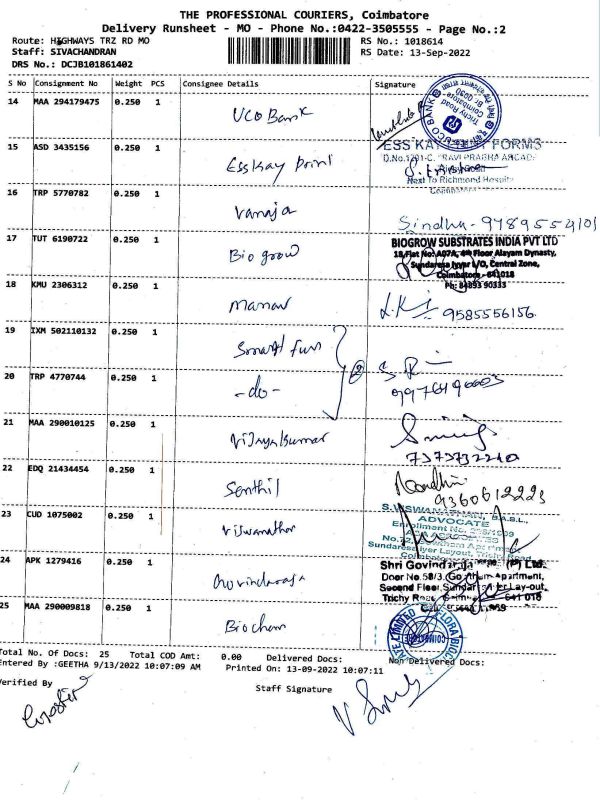 THE PROFESSIONAL COURIERS, Coimbatore
Delivery Runsheet - MO - Phone No.:0422-3505555 - Page No.:2
Route: HIGHWAYS TRZ RD MO
RS No.: 1018614
Staff: SIVACHANDRAN
RS Date: 13-Sep-2022
DRS No.: DCJB101861402
S No Consignment No Weight PCS Consignee Details Signature
14 MAA 294179475 0.250 1 UCO Bank
UCO BANK
Trichy Road
Coimbatore
15 ASD 3435156 0.250 1 Esskay Print
D.No.1201-C, "RAVI PRABHA ARCADE
Next To Richmond Hospital
16 TRP 5770782 0.250 1 Vanaja
Sindhu - 9789554101
17 TUT 6190722 0.250 1 Bio grow
BIOGROW SUBSTRATES INDIA PVT LTD
18, Flat No: A07A, 4th Floor Alayam Dynasty,
Sundaresa Iyyar L/O, Central Zone,
Coimbatore - 641018
Ph: 84893 90333
18 KMU 2306312 0.250 1 Manav
9585556156
19 IXM 502110132 0.250 1 Smart fun
20 TRP 4770744 0.250 1 -do-
2
21 MAA 290010125 0.250 1 Vijayakumar
7373732210
22 EDQ 21434454 0.250 1 Senthil
Nandhini
9360612223
23 CUD 1075002 0.250 1 Viswanathan
S.VISWANATHAN, B.A.B.L.,
ADVOCATE
Sundaresa Iyer Layout, Trichy Road
24 APK 1279416 0.250 1 Govindaraja
Shri Govindaraja (P) Ltd.
Door No.58/3, Gowtham Apartment,
Second Floor, Sundaresa Iyer Lay-out,
Trichy Road 641 018
25 MAA 290009818 0.250 1 Biochem
Total No. Of Docs: 25 Total COD Amt: 0.00 Delivered Docs: Non Delivered Docs:
Entered By :GEETHA 9/13/2022 10:07:09 AM Printed On: 13-09-2022 10:07:11
Verified By
Staff Signature